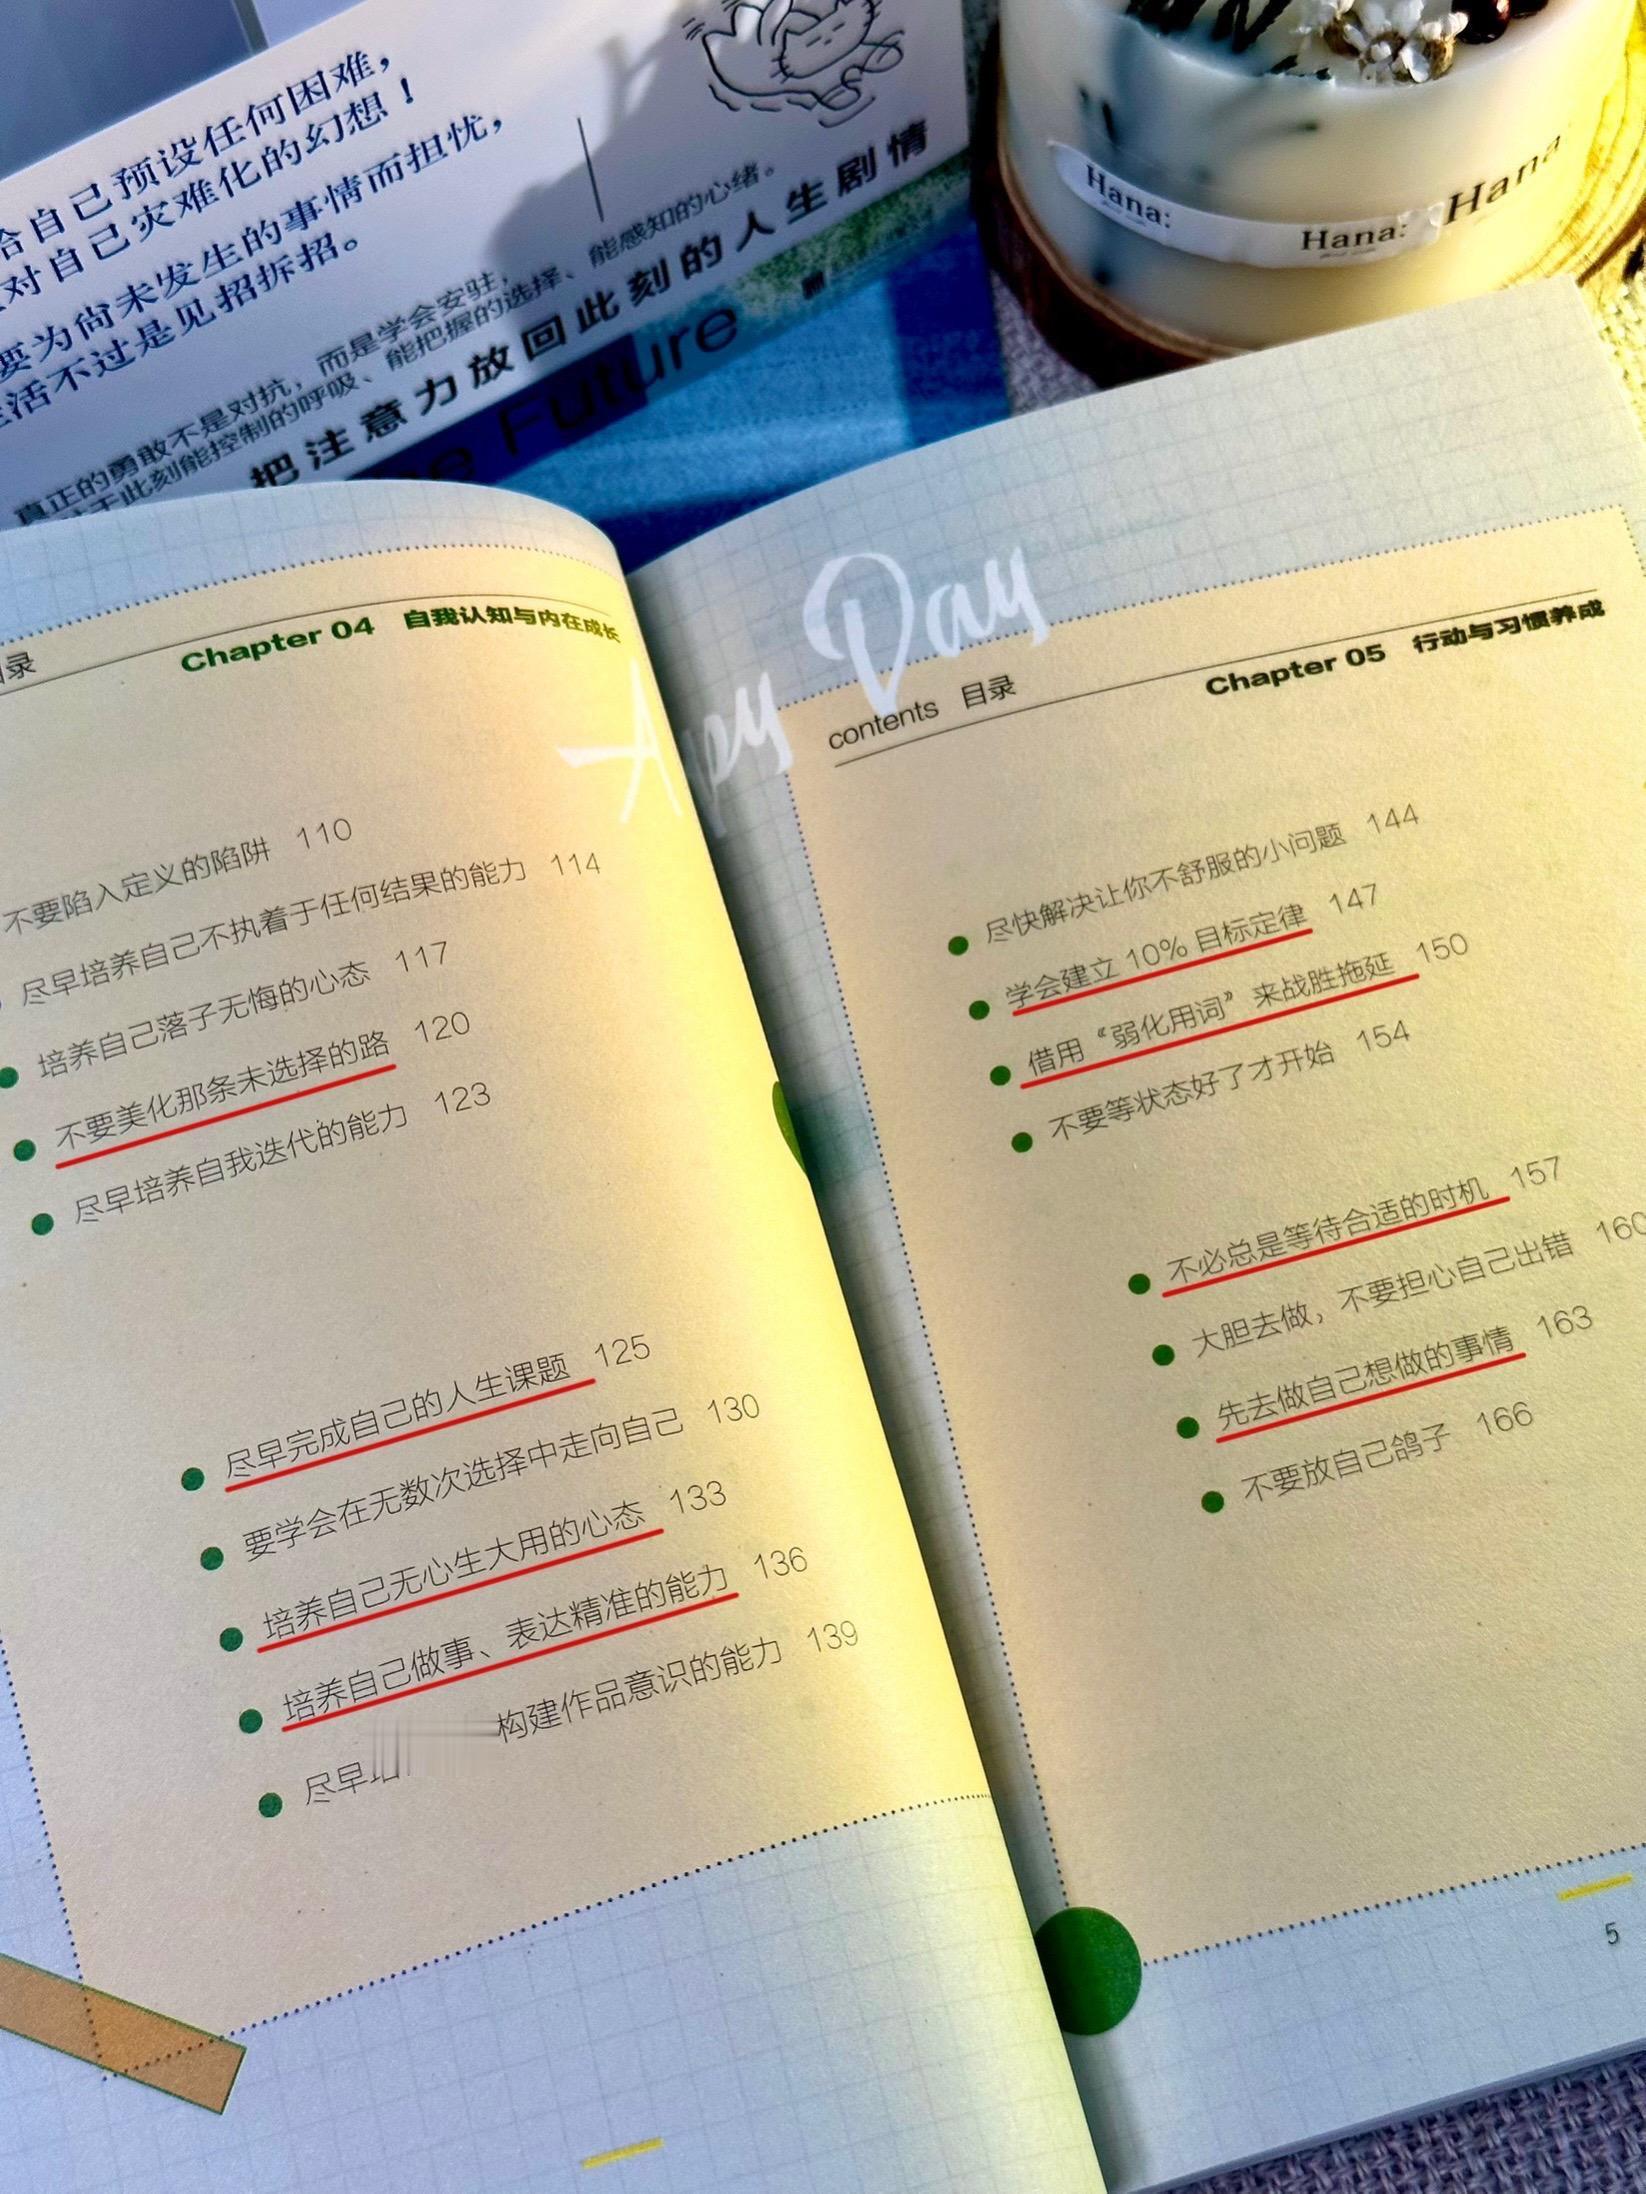 给自己预设任何困难，
对自己灾难化的幻想！
要为尚未发生的事情而担忧，
活不过是见招拆招。
真正的勇敢不是对抗，而是学会安驻，
于此刻能控制的呼吸、能把握的选择、能感知的心绪。
把注意力放回此刻的人生剧情
The Future
Hana:
Hana:
Hana
Day
目录
Chapter 04 自我认知与内在成长
不要陷入定义的陷阱 110
尽早培养自己不执着于任何结果的能力 114
培养自己落子无悔的心态 117
不要美化那条未选择的路 120
尽早培养自我迭代的能力 123
尽早完成自己的人生课题 125
要学会在无数次选择中走向自己 130
培养自己无心生大用的心态 133
培养自己做事、表达精准的能力 136
尽早 构建作品意识的能力 139
contents 目录
Chapter 05 行动与习惯养成
尽快解决让你不舒服的小问题 144
学会建立 10% 目标定律 147
借用“弱化用词”来战胜拖延 150
不要等状态好了才开始 154
不必总是等待合适的时机 157
大胆去做，不要担心自己出错 160
先去做自己想做的事情 163
不要放自己鸽子 166
5